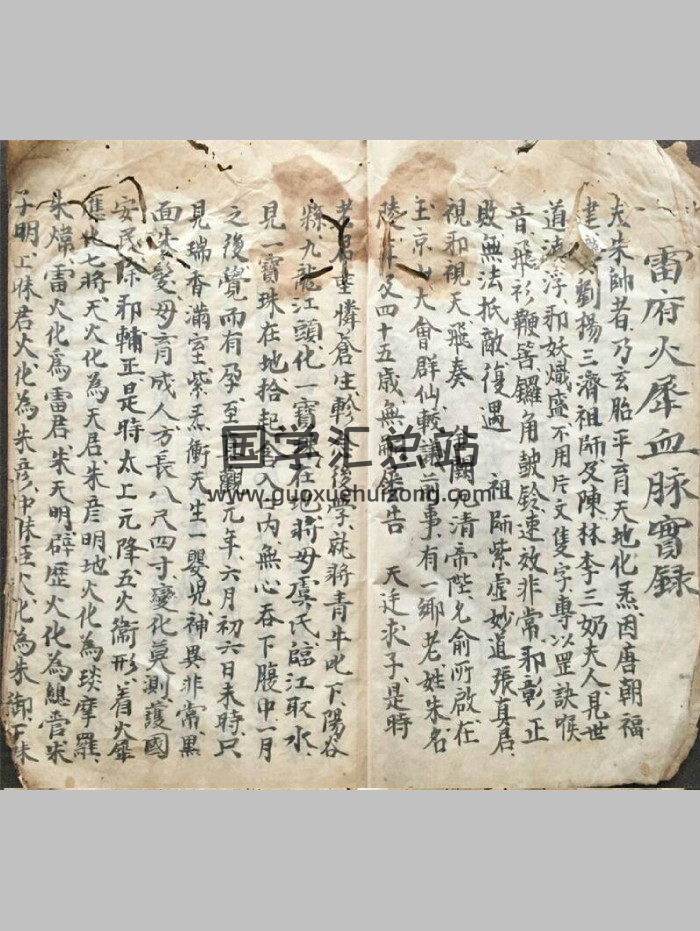 雷府火犀血脉實録
夫朱帥者乃玄胎平育天地化炁因唐朝福
建劉楊三濟祖師及陳林李三奶夫人見世
道澆浮邪妖熾盛不用片文隻字專以罡訣喉
音飛衫鞭答鑼角鼓鈴速效非常邪彰正
敗無法抵敵復遇 祖師紫虚妙道張真君
視邪視天飛奏 闕元清帝陛允俞所啟在
玉京山大會群仙較議前事有一鄉老姓朱名
陵 年及四十五歲無 告 天廷求子是時
老君 憐蒼生 後學就將青牛 下陽谷
縣九龍江頭化一寶 在地蔣母虞氏臨江取水
見一寶珠在地拾起含入口内無心吞下腹中一月
之後覺而有孕至 觀元年六月初六日未時只
見瑞香滿室紫炁衝天生一嬰児神異非常黑
面朱髮母育成人方長八尺四寸變化莫測護國
安民除邪輔正是時太上元降五火衛形着火犀
應化七將天火化為天君朱彦明地火化為琰摩羅
朱煒雷火化為雷君朱天明霹歷火化為總管朱
子明上昧君火化為朱彦冲 火化為朱御下昧
国学汇总站
www.guoxuehuizong.com